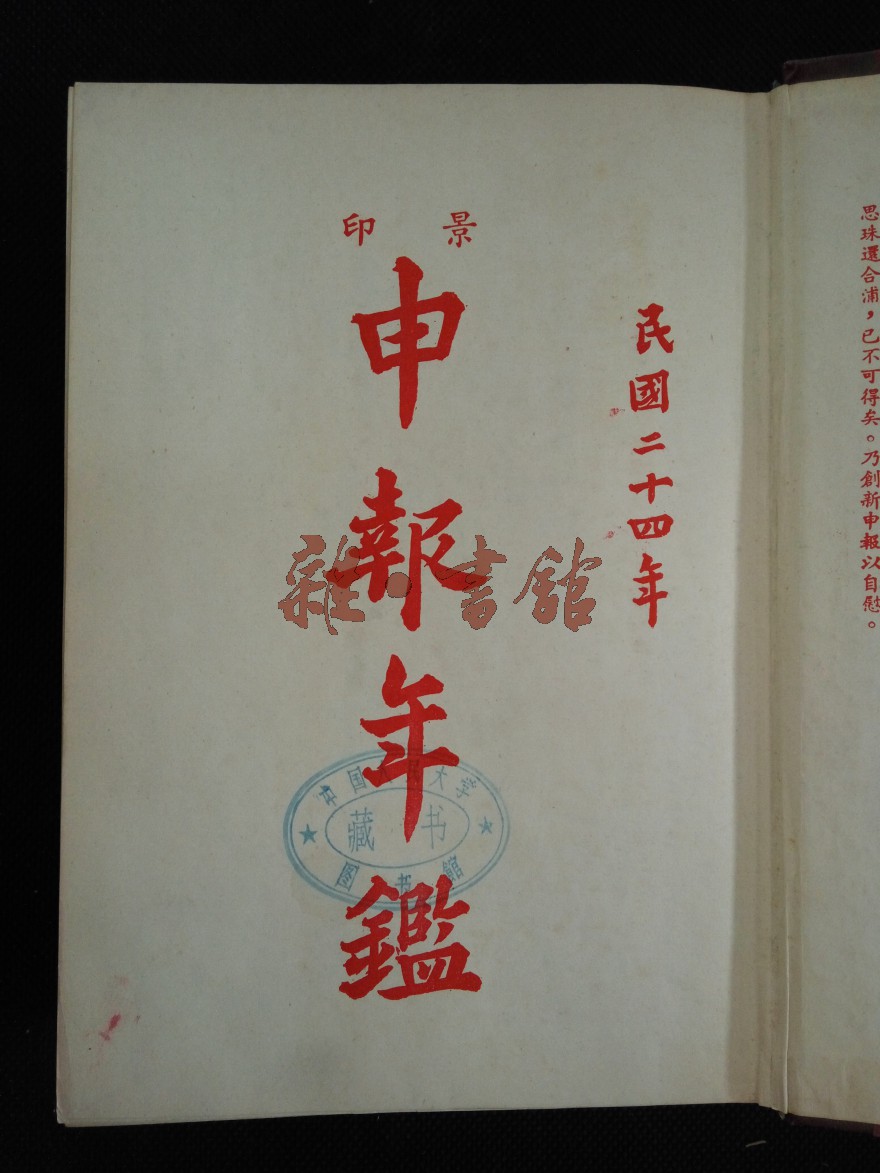 思珠還合浦，已不可得矣。乃創新申報以自慰。
民國二十四年
景印
申報年鑑
雜·書館
中国人民大学
藏书
图书館